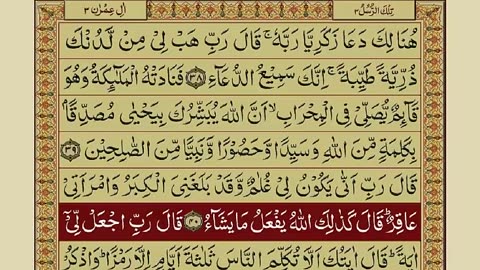 تِلْكَ الرُّسُلُ ٣
اٰلِ عِمْرٰن ٣
هُنَالِكَ دَعَا زَكَرِيَّا رَبَّهٗ ۚ قَالَ رَبِّ هَبْ لِیْ مِنْ لَّدُنْكَ
ذُرِّیَّةً طَیِّبَةً ۚ اِنَّكَ سَمِیْعُ الدُّعَآءِ ﴿۳۸﴾ فَنَادَتْهُ الْمَلٰٓئِكَةُ وَهُوَ
قَآئِمٌ یُّصَلِّیْ فِی الْمِحْرَابِ ۙ اَنَّ اللّٰهَ یُبَشِّرُكَ بِیَحْیٰی مُصَدِّقًۢا
بِكَلِمَةٍ مِّنَ اللّٰهِ وَسَیِّدًا وَّحَصُوْرًا وَّنَبِیًّا مِّنَ الصّٰلِحِیْنَ ﴿۳۹﴾
قَالَ رَبِّ اَنّٰی یَكُوْنُ لِیْ غُلٰمٌ وَّقَدْ بَلَغَنِیَ الْكِبَرُ وَامْرَاَتِیْ
عَاقِرٌ ؕ قَالَ كَذٰلِكَ اللّٰهُ یَفْعَلُ مَا یَشَآءُ ﴿۴۰﴾ قَالَ رَبِّ اجْعَلْ لِّیْۤ
اٰیَةً ؕ قَالَ اٰیَتُكَ اَلَّا تُكَلِّمَ النَّاسَ ثَلٰثَةَ اَیَّامٍ اِلَّا رَمْزًا ؕ وَاذْكُرْ